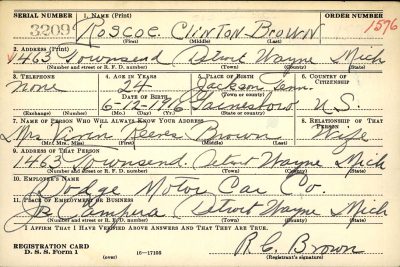 SERIAL NUMBER 1. NAME (Print) ORDER NUMBER
3209 Roscoe Clinton Brown 1576
(First) (Middle) (Last)
2. ADDRESS (Print)
1463 Townsend Detroit Wayne Mich
(Number and street or R. F. D. number) (Town) (County) (State)
3. TELEPHONE 4. AGE IN YEARS 5. PLACE OF BIRTH 6. COUNTRY OF CITIZENSHIP
None 24 Jackson Tenn.
DATE OF BIRTH (Town or county)
6-12-1916 Gainesboro U.S.
(Exchange) (Number) (Mo.) (Day) (Yr.) (State or country)
7. NAME OF PERSON WHO WILL ALWAYS KNOW YOUR ADDRESS 8. RELATIONSHIP OF THAT PERSON
Mrs Reeves Brown Wife
(Mr., Mrs., Miss) (First) (Middle) (Last)
9. ADDRESS OF THAT PERSON
1463 Townsend Detroit Wayne Mich
(Number and street or R. F. D. number) (Town) (County) (State)
10. EMPLOYER'S NAME
Dodge Motor Car Co.
11. PLACE OF EMPLOYMENT OR BUSINESS
Jos Campau Detroit Wayne Mich
(Number and street or R. F. D. number) (Town) (County) (State)
I AFFIRM THAT I HAVE VERIFIED ABOVE ANSWERS AND THAT THEY ARE TRUE.
REGISTRATION CARD
D. S. S. Form 1 (over) 16-17105 R.C. Brown
(Registrant's signature)